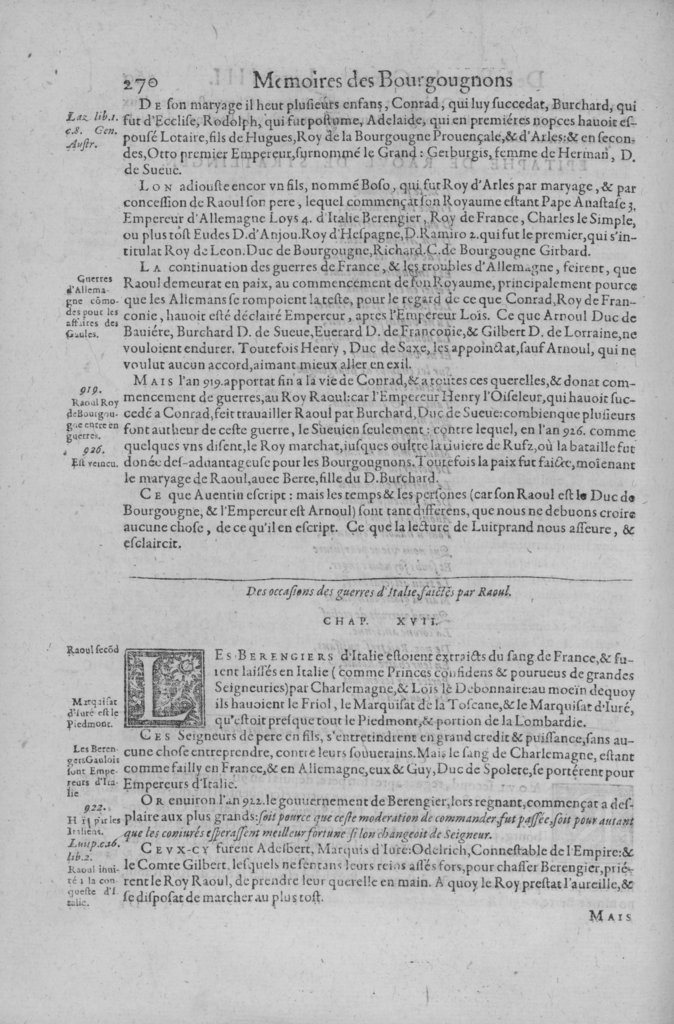 270 Memoires des Bourgougnons
DE son maryage il heut plusieurs enfans, Conrad, qui luy succedat, Burchard, qui
Laz. lib. 1.
c. 8. Gen.
Austr.
fut d'Ecclise, Rodolph, qui fut postume, Adelaide, qui en premiéres nopces hauoit es-
pousé Lotaire, fils de Hugues, Roy de la Bourgougne Prouençale, & d'Arles: & en secon-
des, Otto premier Empereur, surnommé le Grand: Gerburgis, femme de Herman, D.
de Sueue.
LON adiouste encor vn fils, nommé Boso, qui fut Roy d'Arles par maryage, & par
concession de Raoul son pere, lequel commençat son Royaume estant Pape Anastase 3.
Empereur d'Allemagne Loys 4. d'Italie Berengier, Roy de France, Charles le Simple,
ou plus tost Eudes D. d'Anjou. Roy d'Hespagne, D. Ramiro 2. qui fut le premier, qui s'in-
titulat Roy de Leon. Duc de Bourgougne, Richard. C. de Bourgougne Girbard.
LA continuation des guerres de France, & les troubles d'Allemagne, feirent, que
Guerres
d'Allema-
gne cōmo-
des pour les
affaires des
Gaules.
Raoul demeurat en paix, au commencement de son Royaume, principalement pource
que les Allemans se rompoient la teste, pour le regard de ce que Conrad, Roy de Fran-
conie, hauoit esté déclairé Empereur, apres l'Empereur Lois. Ce que Arnoul Duc de
Bauiére, Burchard D. de Sueue, Euerard D. de Franconie, & Gilbert D. de Lorraine, ne
vouloient endurer. Toutefois Henry, Duc de Saxe, les appoinctat, sauf Arnoul, qui ne
voulut aucun accord, aimant mieux aller en exil.
MAIS l'an 919. apportat fin a la vie de Conrad, & a toutes ces querelles, & donat com-
919.
Raoul Roy
de Bourgou-
gne entre en
guerres.
926.
Est veincu.
mencement de guerres, au Roy Raoul: car l'Empereur Henry l'Oiseleur, qui hauoit suc-
cedé a Conrad, feit trauailler Raoul par Burchard, Duc de Sueue: combien que plusieurs
font autheur de ceste guerre, le Sueuien seulement: contre lequel, en l'an 926. comme
quelques vns disent, le Roy marchat, iusques oultre la riuiere de Rufz, où la bataille fut
donée des-aduantageuse pour les Bourgougnons. Toutefois la paix fut faicte, moïenant
le maryage de Raoul, auec Berte, fille du D. Burchard.
CE que Auentin escript: mais les temps & les persones (car son Raoul est le Duc de
Bourgougne, & l'Empereur est Arnoul) sont tant differens, que nous ne debuons croire
aucune chose, de ce qu'il en escript. Ce que la lecture de Luitprand nous asseure, &
esclaircit.
Des occasions des guerres d'Italie, faictes par Raoul.
CHAP. XVII.
Raoul secōd
LES BERENGIERS d'Italie estoient extraicts du sang de France, & fu-
rent laissés en Italie (comme Princes confidens & pourueus de grandes
Seigneuries) par Charlemagne, & Loïs le Debonnaire: au moeïn dequoy
Marquisat
d'Iuré est le
Piedmont.
ils hauoient le Friol, le Marquisat de la Toscane, & le Marquisat d'Iuré,
qu'estoit presque tout le Piedmont, & portion de la Lombardie.
CES Seigneurs de pere en fils, s'entretindrent en grand credit & puissance, sans au-
Les Beren-
giers Gaulois
sont Empe-
reurs d'Ita-
lie.
cune chose entreprendre, contre leurs souuerains. Mais le sang de Charlemagne, estant
comme failly en France, & en Allemagne, eux & Guy, Duc de Spolete, se portérent pour
Empereurs d'Italie.
OR enuiron l'an 922. le gouuernement de Berengier, lors regnant, commençat a des-
922.
plaire aux plus grands: soit pource que ceste moderation de commander, fut passée, soit pour autant
que les coniurés esperassent meilleur fortune si lon changeoit de Seigneur.
par les
Italiens.
Luitp. c. 16.
lib. 2.
Raoul inui-
té a la con-
queste d'I-
talie.
CEVX-CY furent Adelbert, Marquis d'Iuré: Odelrich, Connestable de l'Empire: &
le Comte Gilbert, lesquels ne sentans leurs reins assés fors, pour chasser Berengier, prié-
rent le Roy Raoul, de prendre leur querelle en main. A quoy le Roy prestat l'aureille, &
se disposat de marcher au plus tost.
MAIS